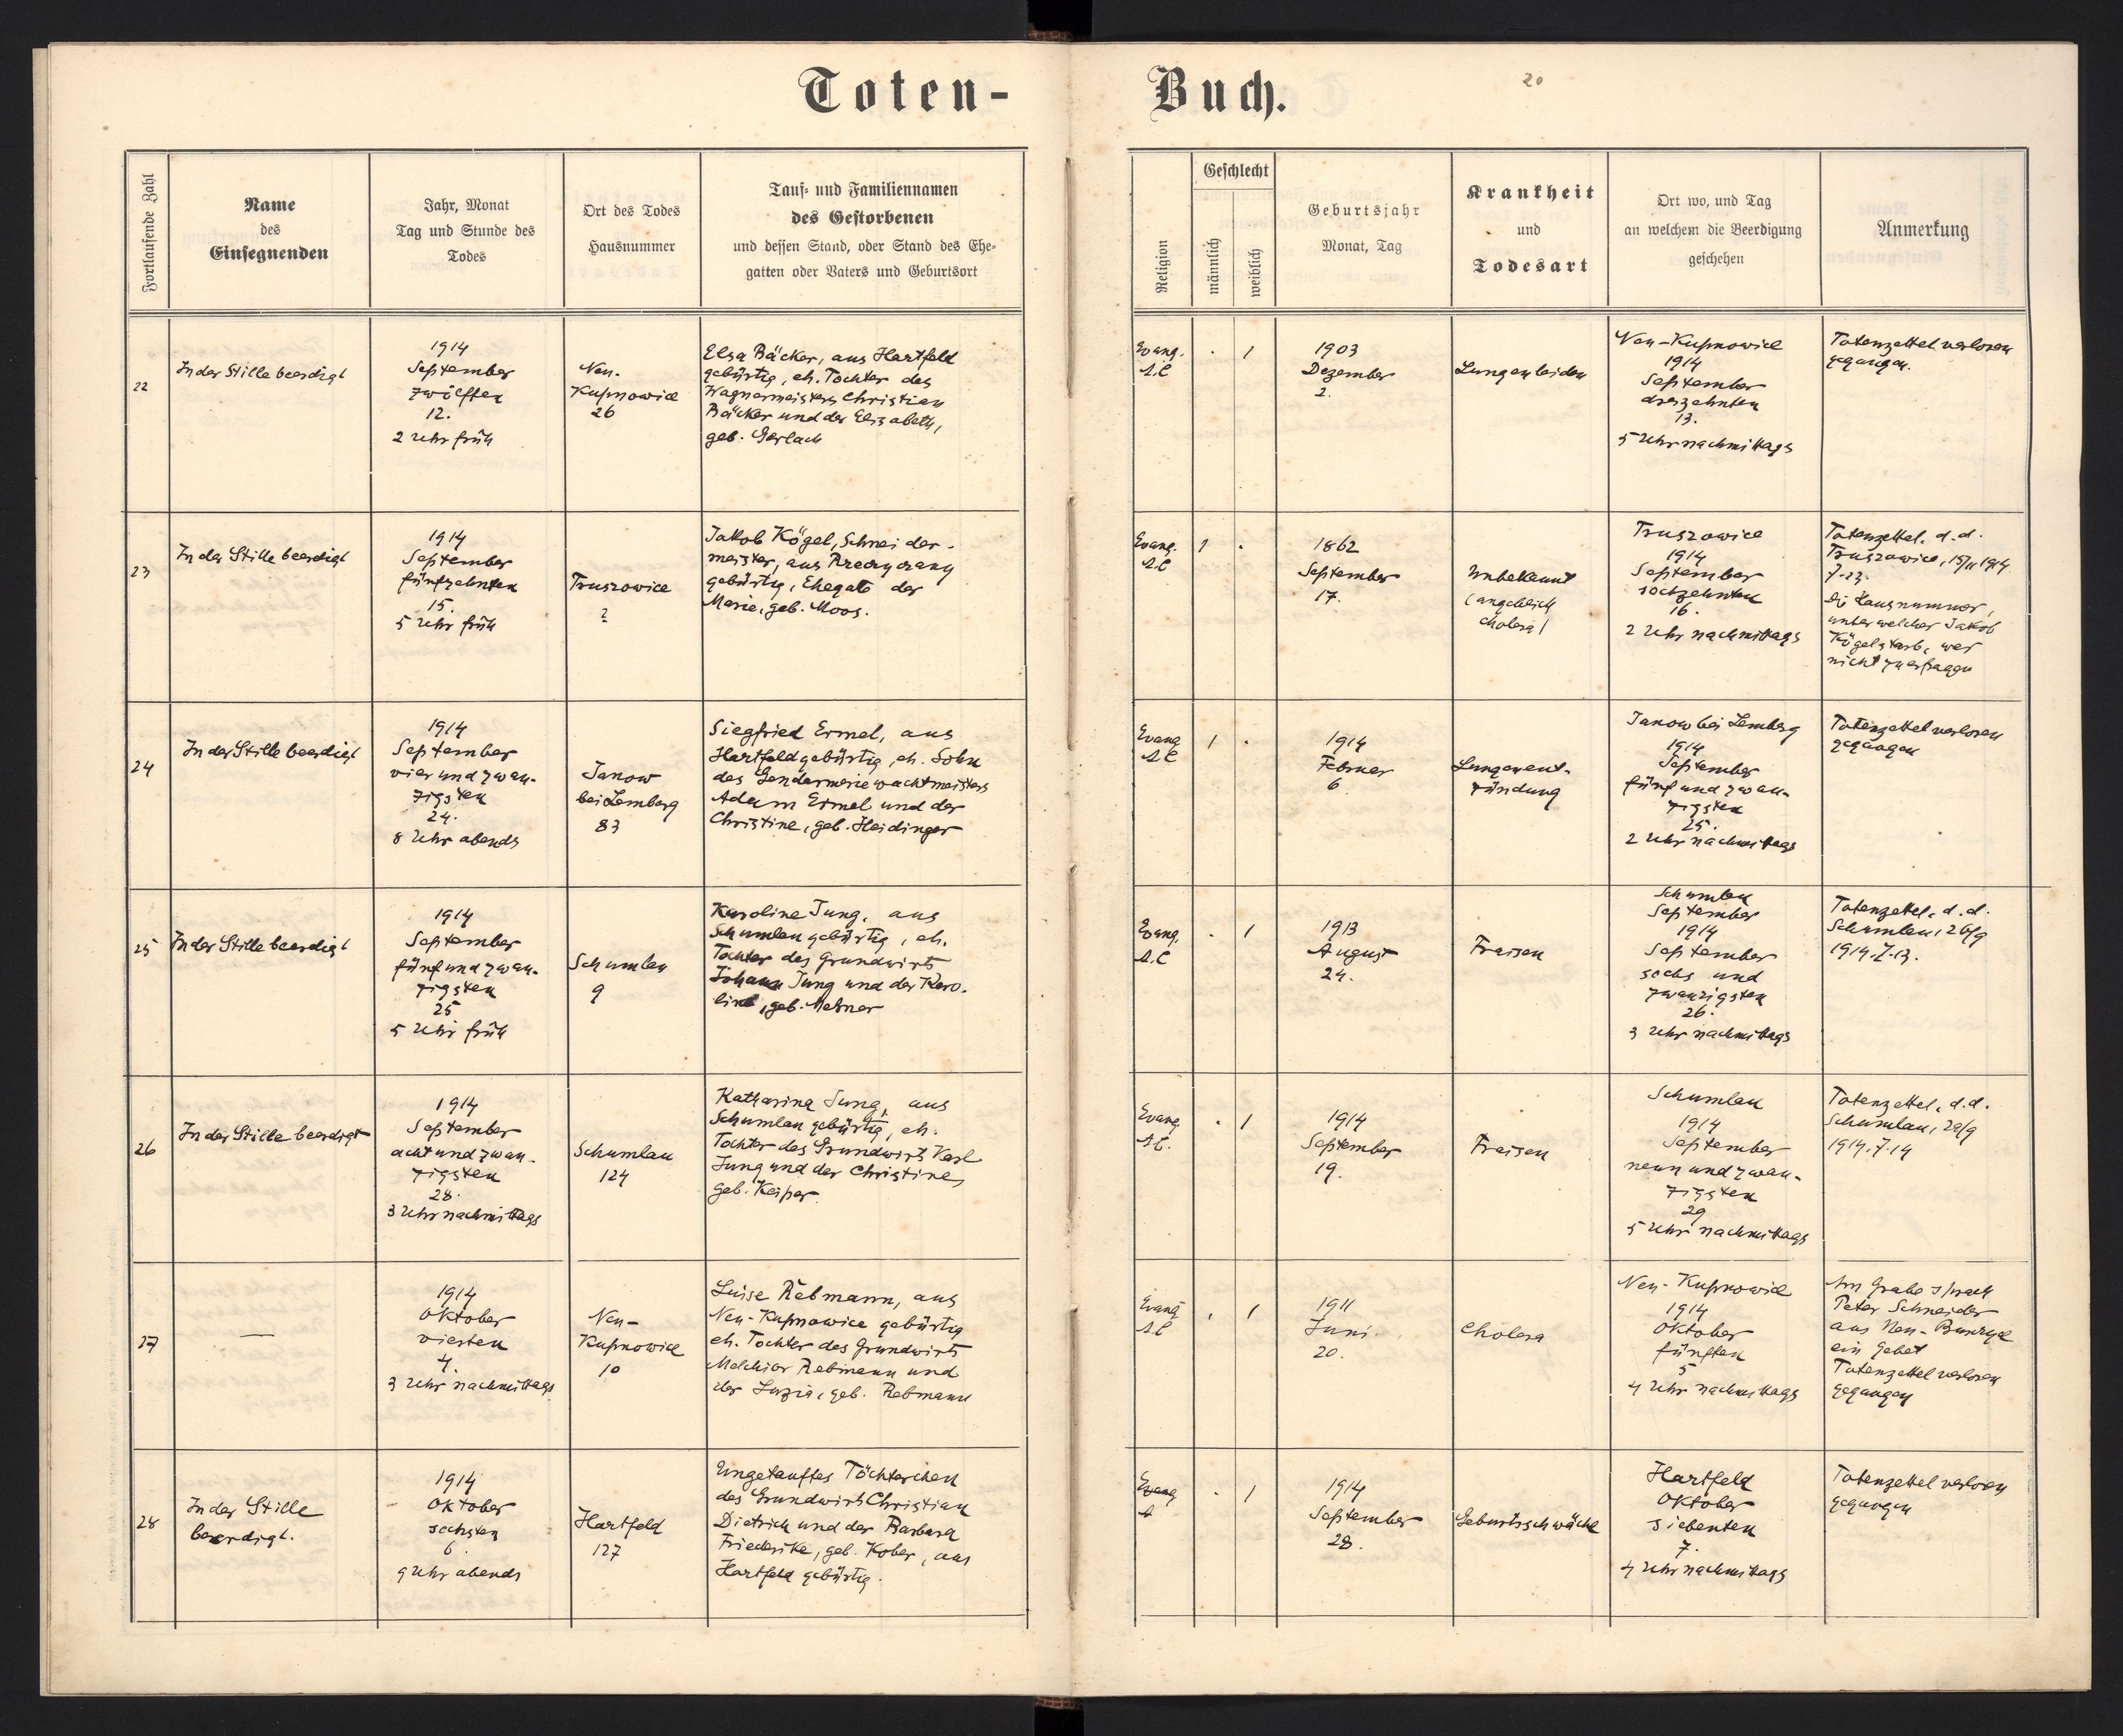 Toten-
Buch.
20
Fortlaufende Zahl
Name
des
Einsegnenden
Jahr, Monat
Tag und Stunde des
Todes
Ort des Todes
Hausnummer
Tauf- und Familiennamen
des Gestorbenen
und dessen Stand, oder Stand des Ehe-
gatten oder Vaters und Geburtsort
Religion
Geschlecht
männlich
weiblich
Geburtsjahr
Monat, Tag
Krankheit
und
Todesart
Ort wo, und Tag
an welchem die Beerdigung
geschehen
Anmerkung
22
In der Stille beerdigt
1914
September
zwölften
12.
2 Uhr früh
Neu-
Kupnowice
26
Elsa Bäcker, aus Hartfeld
gebürtig, eh. Tochter des
Wagnermeisters Christian
Bäcker und der Elisabeth,
geb. Gerlach
Evang.
A.C
. 1
1903
Dezember
2.
Lungenleiden
Neu-Kupnowice
1914
September
dreizehnten
13.
5 Uhr nachmittags
Totenzettel verloren
gegangen.
23
In der Stille beerdigt
1914
September
fünfzehnten
15.
5 Uhr früh
Truszowice
?
Jakob Kögel, Schneider-
meister, aus
gebürtig, Ehegate der
Marie, geb. Moos.
Evang.
A.C
1 .
1862
September
17.
Unbekannt
(angeblich
Cholera)
Truszowice
1914
September
sechzehnten
16.
2 Uhr nachmittags
Totenzettel. d. d.
Truszowice, 15/11 1914
Z.23.
Die Hausnummer,
unter welcher Jakob
Kögel starb, war
nicht zu erfragen
24
In der Stille beerdigt
1914
September
vier und zwan-
zigsten
24.
8 Uhr abends
Janow
bei Lemberg
83
Siegfried Ermel, aus
Hartfeld gebürtig, eh. Sohn
des Gendarmeriewachtmeisters
Adam Ermel und der
Christine, geb. Heidinger
Evang
A.C
1 .
1914
Februar
6
Lungenent-
zündung
Janow bei Lemberg
1914
September
fünf und zwan-
zigsten
25.
2 Uhr nachmittags
Totenzettel verloren
gegangen
25
In der Stille beerdigt
1914
September
fünf und zwan-
zigsten
25
5 Uhr früh
Schumlau
9
Karoline Jung, aus
Schumlau gebürtig, eh.
Tochter des Grundwirts
Johann Jung und der Karo-
line, geb. Metzner
Evang.
A.C
. 1
1913
August
24.
Fraisen
Schumlau
September
1914
September
sechs und
zwanzigsten
26.
3 Uhr nachmittags
Totenzettel. d. d.
Schumlau, 26/9
1914. Z.13.
26
In der Stille beerdigt
1914
September
acht und zwan-
zigsten
28.
3 Uhr nachmittags
Schumlau
124
Katharina Jung, aus
Schumlau gebürtig, eh.
Tochter des Grundwirts Karl
Jung und der Christine,
geb. Keiper.
Evang
A.C.
. 1
1914
September
19.
Fraisen
Schumlau
1914
September
neun und zwan-
zigsten
29
5 Uhr nachmittags
Totenzettel. d. d.
Schumlau, 29/9
1914. Z.14
27
—
1914
Oktober
vierten
4.
3 Uhr nachmittags
Neu-
Kupnowice
10
Luise Rebmann, aus
Neu-Kupnowice gebürtig
eh. Tochter des Grundwirts
Melchior Rebmann und
der Luzia, geb. Rebmann
Evang
A.C
. 1
1911
Juni.
20.
Cholera
Neu-Kupnowice
1914
Oktober
fünften
5
4 Uhr nachmittags
Am Grabe sprach
Peter Schneider
aus Neu-
ein Gebet
Totenzettel verloren
gegangen
28
In der Stille
beerdigt.
1914
Oktober
sechsten
6.
9 Uhr abends
Hartfeld
127
Ungetauftes Töchterchen
des Grundwirts Christian
Dietrich und der Barbara
Friederike, geb. Kober, aus
Hartfeld gebürtig.
Evang
A
. 1
1914
September
28.
Geburtsschwäche
Hartfeld
Oktober
siebenten
7.
4 Uhr nachmittags
Totenzettel verloren
gegangen